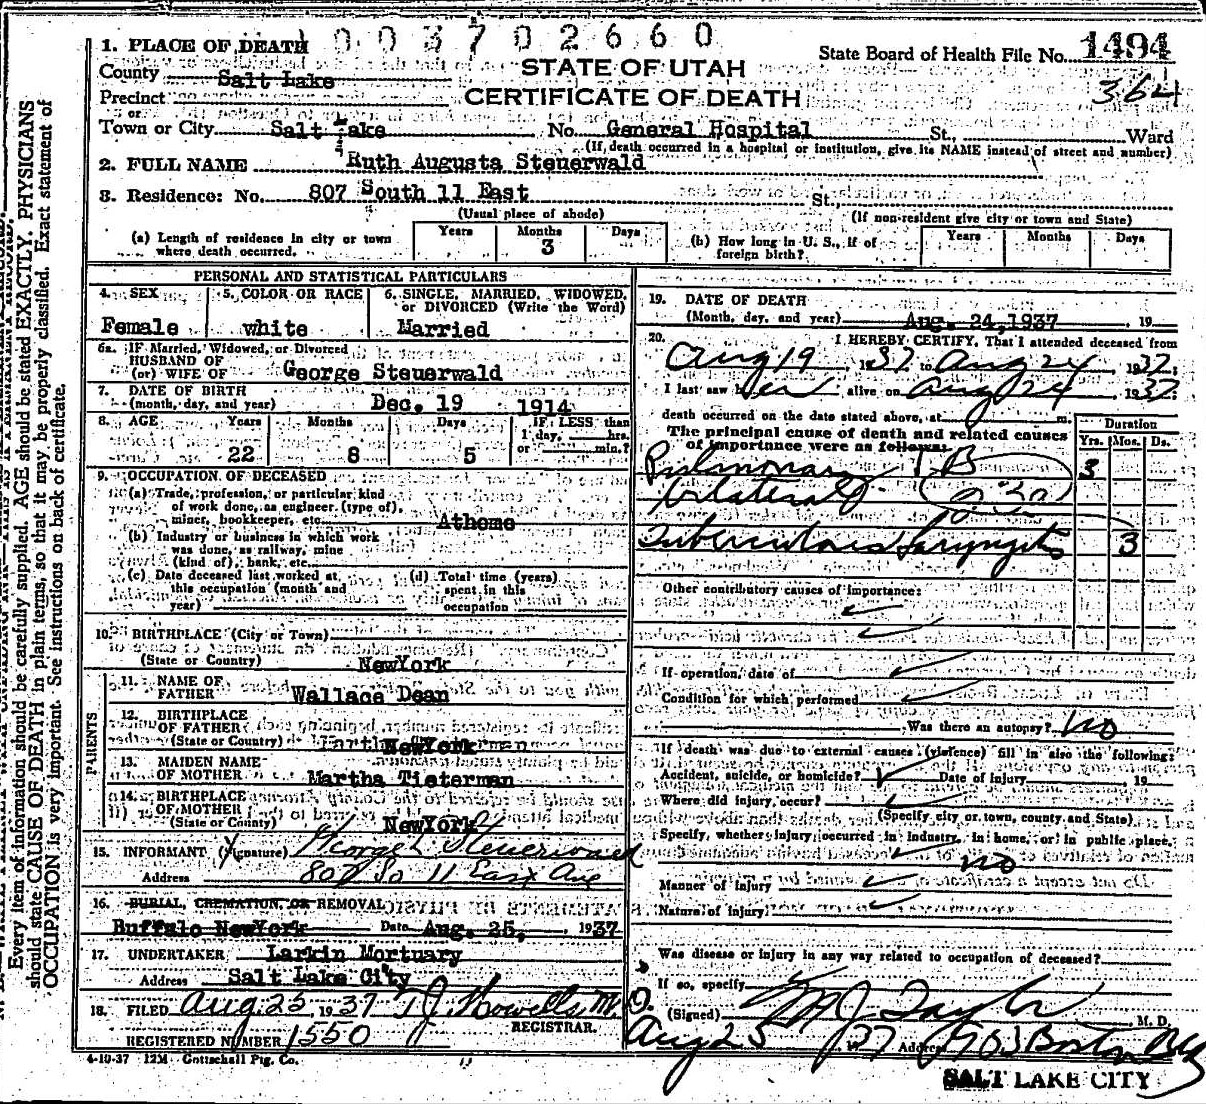 1. PLACE OF DEATH
003702660
State Board of Health File No. 1494
364
County Salt Lake
STATE OF UTAH
Precinct
CERTIFICATE OF DEATH
or
Town or City Salt Lake No. General Hospital St., Ward
(If death occurred in a hospital or institution, give its NAME instead of street and number)
2. FULL NAME Ruth Augusta Steuerwald
3. Residence: No. 807 South 11 East St.,
(Usual place of abode) (If non-resident give city or town and State)
(a) Length of residence in city or town where death occurred. Years Months 3 Days
(b) How long in U. S., if of foreign birth? Years Months Days
PERSONAL AND STATISTICAL PARTICULARS
4. SEX Female
5. COLOR OR RACE white
6. SINGLE, MARRIED, WIDOWED, or DIVORCED (Write the Word) Married
6a. IF Married, Widowed, or Divorced
HUSBAND OF
(or) WIFE OF George Steuerwald
7. DATE OF BIRTH
(month, day, and year) Dec. 19 1914
8. AGE Years 22 Months 8 Days 5 IF LESS than 1 day, hrs. or min.?
9. OCCUPATION OF DECEASED
(a) Trade, profession, or particular kind
of work done, as engineer (type of),
miner, bookkeeper, etc. Athome
(b) Industry or business in which work
was done, as railway, mine
(kind of), bank, etc.
(c) Date deceased last worked at
this occupation (month and
year)
(d) Total time (years)
spent in this
occupation
10. BIRTHPLACE (City or Town)
(State or Country) NewYork
PARENTS
11. NAME OF
FATHER Wallace Dean
12. BIRTHPLACE
OF FATHER
(State or Country) NewYork
13. MAIDEN NAME
OF MOTHER Martha Tieterman
14. BIRTHPLACE
OF MOTHER
(State or County) NewYork
15. INFORMANT (Signature) George L Steuerwald
Address 807 So 11 East Ave
16. BURIAL, CREMATION, OR REMOVAL
Buffalo NewYork Date Aug. 25, 1937
17. UNDERTAKER Larkin Mortuary
Address Salt Lake City
18. FILED Aug. 25, 1937 T J Howells M.D.
REGISTRAR.
REGISTERED NUMBER 1550
4-10-37 12M Gottschall Ptg. Co.
19. DATE OF DEATH
(Month, day, and year) Aug. 24, 1937, 19
20. I HEREBY CERTIFY, That I attended deceased from
Aug 19, 1937 to Aug 24, 1937.
I last saw her alive on Aug 24 1937
death occurred on the date stated above, at m.
The principal cause of death and related causes
of importance were as follows:
Duration
Yrs. Mos. Ds.
Pulmonary TB 3
bilateral
Tuberculous Laryngitis 3
Other contributory causes of importance:
If operation, date of
Condition for which performed
Was there an autopsy? No
If death was due to external causes (violence) fill in also the following:
Accident, suicide, or homicide? Date of injury 19
Where did injury occur?
(Specify city or town, county and State)
Specify, whether injury occurred in industry, in home, or in public place.
no
Manner of injury
Nature of injury
Was disease or injury in any way related to occupation of deceased?
If so, specify
(Signed) Taylor, M. D.
Aug 25 1937 Address 903 Boston Bldg
SALT LAKE CITY
Every item of information should be carefully supplied. AGE should be stated EXACTLY. PHYSICIANS
should state CAUSE OF DEATH in plain terms, so that it may be properly classified. Exact statement of
OCCUPATION is very important. See instructions on back of certificate.